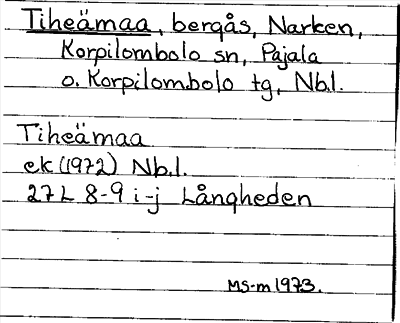 Tiheämaa, bergås, Narken,
Korpilombolo sn, Pajala
o. Korpilombolo tg, Nb.l.
Tiheämaa
ek (1972) Nb.l.
27 L 8-9 i-j Långheden
MS-m 1973.